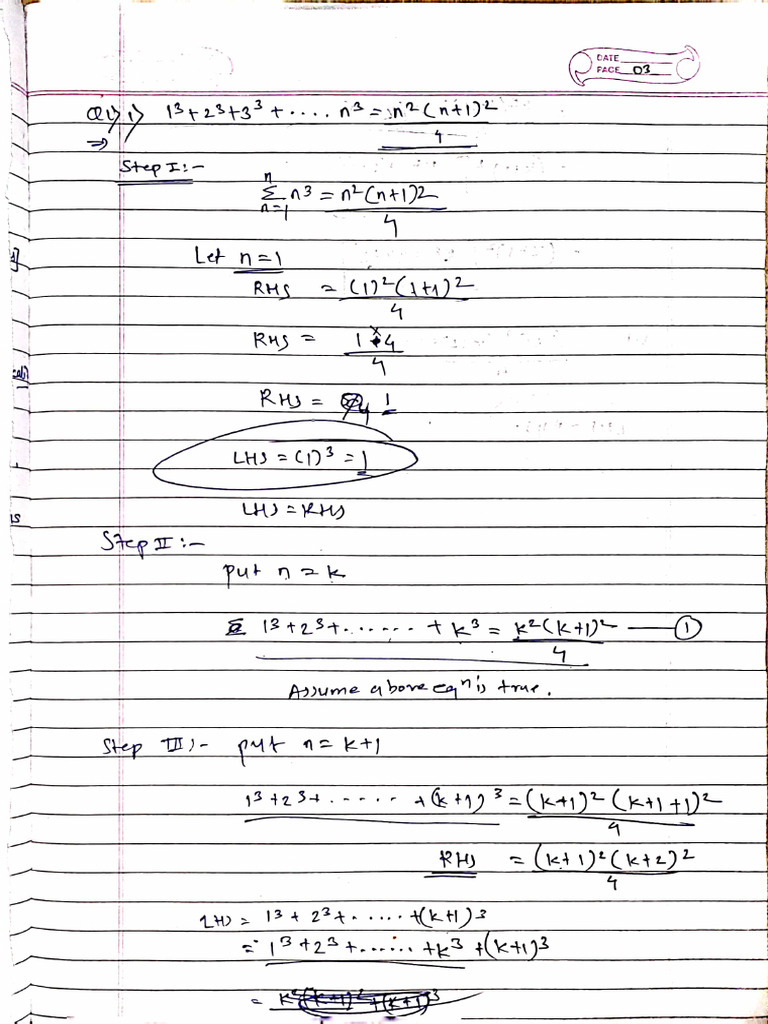 DATE
PAGE 03
Q1) 1) 1³+2³+3³+....n³ = n²(n+1)²
4
⇒
Step I:-
n
Σ n³ = n²(n+1)2
n=1
4
Let n=1
RHS = (1)²(1+1)²
4
RHS = 1×4
4
RHS = 1
LHS = (1)³ = 1
LHS = RHS
Step II:-
put n = k
1³+2³+...... + k³ = k²(k+1)² — 1
4
Assume above eqⁿ is true.
Step III:- put n = k+1
1³+2³+...... +(k+1)³ = (k+1)²(k+1+1)²
4
RHS = (k+1)²(k+2)²
4
LHS = 1³+2³+......+(k+1)³
= 1³+2³+......+k³+(k+1)³